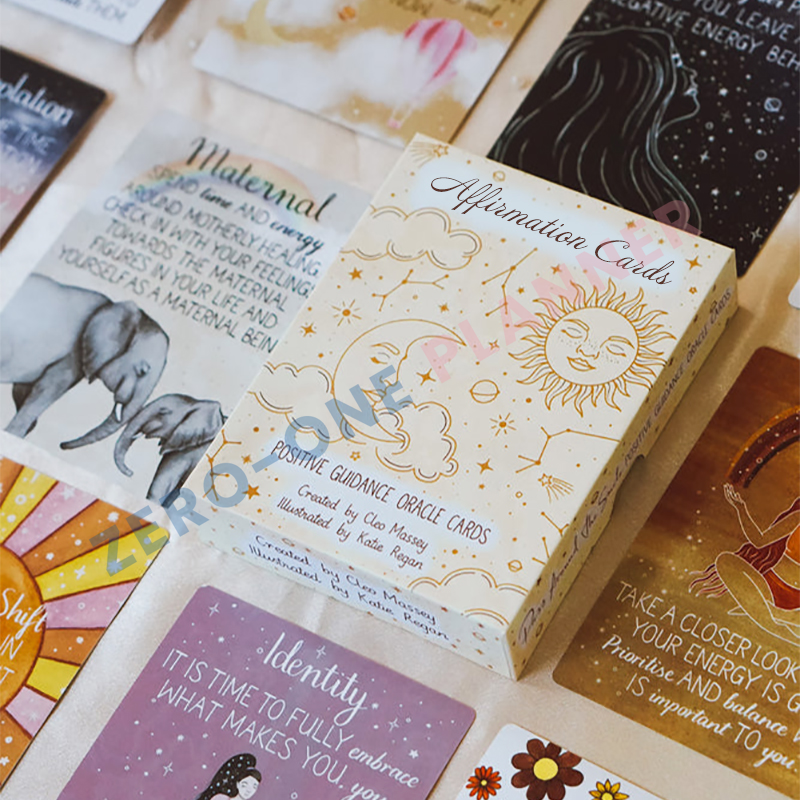 THEM.
NOW.
YOU LEAVE
NEGATIVE ENERGY BEH
Maternal
SPEND time AND energy
AROUND MOTHERLY HEALING.
CHECK IN WITH YOUR FEELINGS
TOWARDS THE MATERNAL
FIGURES IN YOUR LIFE AND
YOURSELF AS A MATERNAL BEIN
Affirmation Cards
POSITIVE GUIDANCE ORACLE CARDS
Created by Cleo Massey
Illustrated by Katie Regan
Created by Cleo Massey
Illustrated by Katie Regan
POSITIVE GUIDANCE ORACLE CARDS
ZERO-ONE PLANNER
Shift
IN
Identity
IT IS TIME TO FULLY embrace
WHAT MAKES YOU, you
TAKE A CLOSER LOOK
YOUR ENERGY IS G
Prioritise AND balance
IS important TO you.